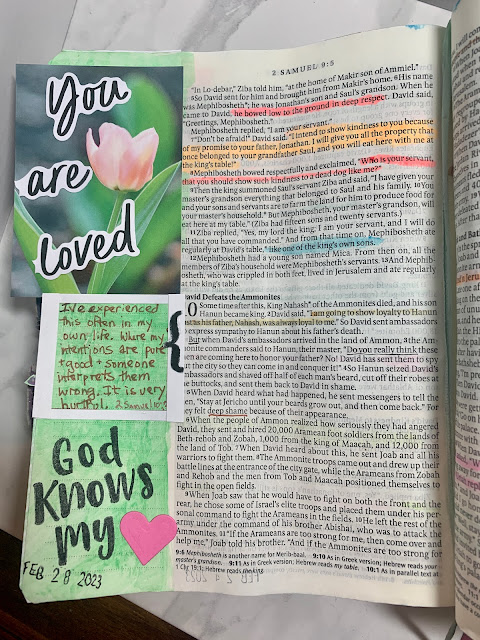 2 SAMUEL 9:5
You
are
loved
I've experienced
this often in my
own life. Where my
intentions are pure
+ good + someone
interprets them
wrong. It is very
hurtful. 2 Samuel 10
{
God
Knows
my
FEB 28 2023
"In Lo-debar," Ziba told him, "at the home of Makir son of Ammiel."
5So David sent for him and brought him from Makir's home. 6His name
was Mephibosheth*; he was Jonathan's son and Saul's grandson. When he
came to David, he bowed low to the ground in deep respect. David said,
"Greetings, Mephibosheth."
Mephibosheth replied, "I am your servant."
7"Don't be afraid!" David said. "I intend to show kindness to you because
of my promise to your father, Jonathan. I will give you all the property that
once belonged to your grandfather Saul, and you will eat here with me at
the king's table!"
8Mephibosheth bowed respectfully and exclaimed, "Who is your servant,
that you should show such kindness to a dead dog like me?"
9Then the king summoned Saul's servant Ziba and said, "I have given your
master's grandson everything that belonged to Saul and his family. 10You
and your sons and servants are to farm the land for him to produce food for
your master's household.* But Mephibosheth, your master's grandson, will
eat here at my table." (Ziba had fifteen sons and twenty servants.)
11Ziba replied, "Yes, my lord the king; I am your servant, and I will do
all that you have commanded." And from that time on, Mephibosheth ate
regularly at David's table,* like one of the king's own sons.
12Mephibosheth had a young son named Mica. From then on, all the
members of Ziba's household were Mephibosheth's servants. 13And Mephib-
osheth, who was crippled in both feet, lived in Jerusalem and ate regularly
at the king's table.
David Defeats the Ammonites
10 Some time after this, King Nahash* of the Ammonites died, and his son
Hanun became king. 2David said, "I am going to show loyalty to Hanun
just as his father, Nahash, was always loyal to me." So David sent ambassadors
to express sympathy to Hanun about his father's death.
But when David's ambassadors arrived in the land of Ammon, 3the Am-
monite commanders said to Hanun, their master, "Do you really think these
men are coming here to honor your father? No! David has sent them to spy
out the city so they can come in and conquer it!" 4So Hanun seized David's
ambassadors and shaved off half of each man's beard, cut off their robes at
the buttocks, and sent them back to David in shame.
5When David heard what had happened, he sent messengers to tell the
men, "Stay at Jericho until your beards grow out, and then come back." For
they felt deep shame because of their appearance.
6When the people of Ammon realized how seriously they had angered
David, they sent and hired 20,000 Aramean foot soldiers from the lands of
Beth-rehob and Zobah, 1,000 from the king of Maacah, and 12,000 from
the land of Tob. 7When David heard about this, he sent Joab and all his
warriors to fight them. 8The Ammonite troops came out and drew up their
battle lines at the entrance of the city gate, while the Arameans from Zobah
and Rehob and the men from Tob and Maacah positioned themselves to
fight in the open fields.
9When Joab saw that he would have to fight on both the front and the
rear, he chose some of Israel's elite troops and placed them under his per-
sonal command to fight the Arameans in the fields. 10He left the rest of the
army under the command of his brother Abishai, who was to attack the
Ammonites. 11"If the Arameans are too strong for me, then come over and
help me," Joab told his brother. "And if the Ammonites are too strong for
9:6 Mephibosheth is another name for Merib-baal. 9:10 As in Greek version; Hebrew reads your
master's grandson. 9:11 As in Greek version; Hebrew reads my table. 10:1 As in parallel text at
1 Chr 19:1; Hebrew reads the king